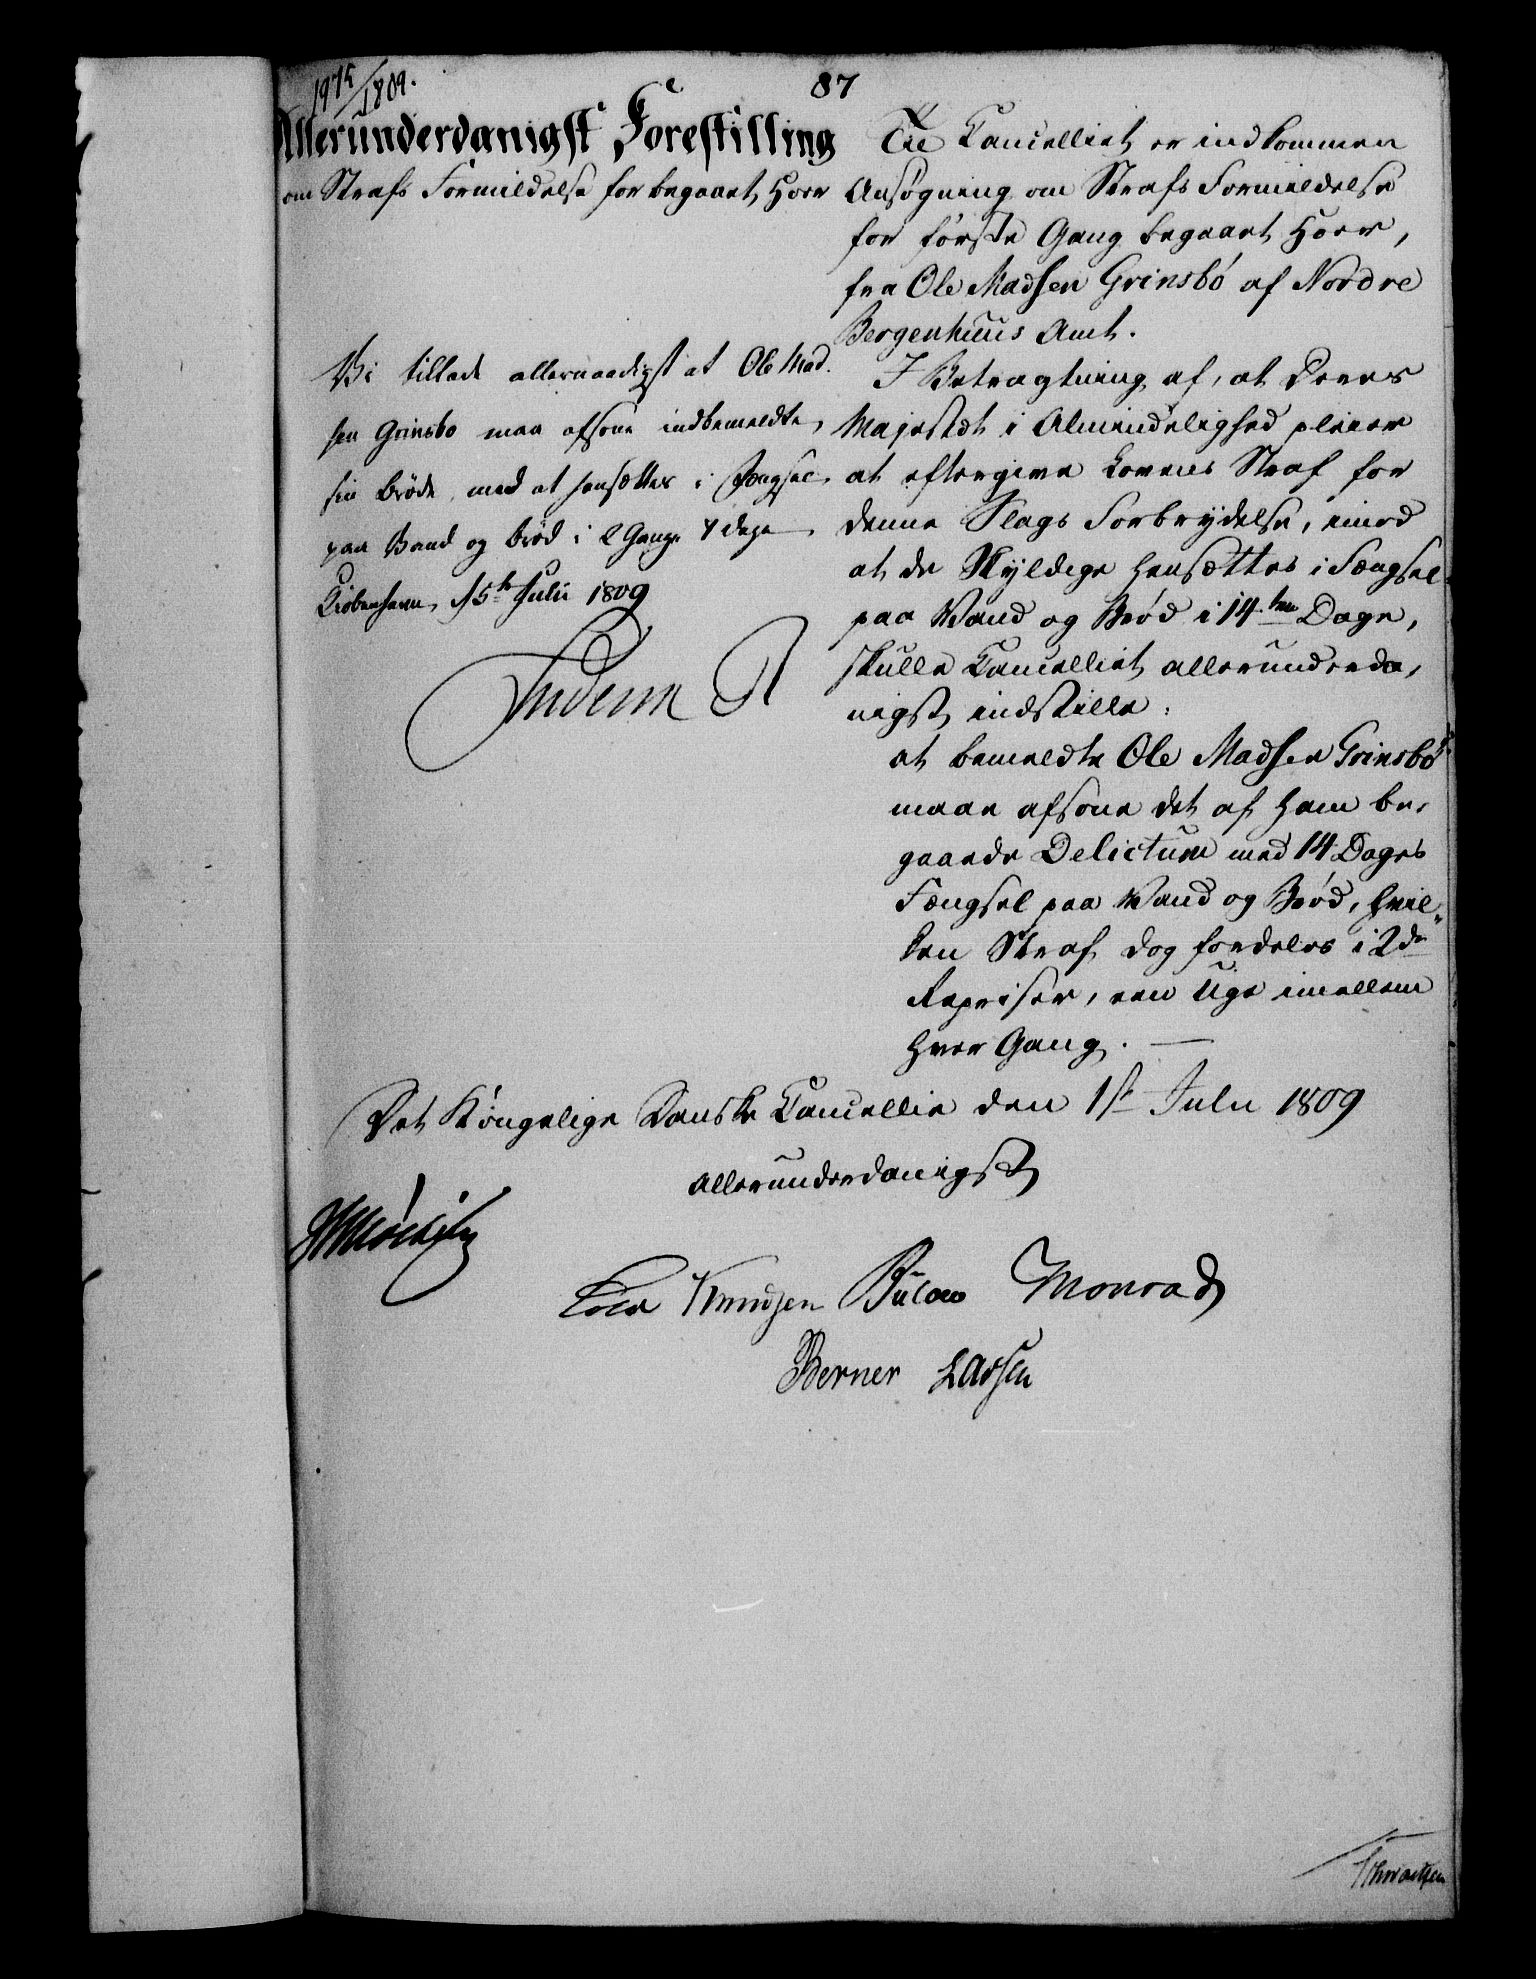 1975/1809.
87
Allerunderdanigst Forestilling
om Strafs Formildelse for begaaet Hoer
Vi tillade allernaadigst at Ole Mad-
sen Grinsbo maa afsone indbemeldte
sin Brøde med at hensættes i Fængsel
paa Vand og Brød i 2 Gange 7 dage
Kiøbenhavn, d 5te Julii 1809
Frederik R
Til Cancelliet er indkommen
Ansøgning om Strafs Formildelse
for første Gang begaaet Hoer,
fra Ole Madsen Grinsbö af Nordre
Bergenhuus Amt.
I Betragtning af, at Deres
Majestæt i Almindelighed pleier
at eftergive Lovens Straf for
denne Slags Forbrydelse, imod
at de Skyldige hensættes i Fængsel
paa Vand og Brød i 14ten Dage,
skulle Cancelliet allerunderda-
nigst indstille:
at bemeldte Ole Madsen Grinsbö
maae afsone det af ham be-
gaaede Delictum med 14 Dages
Fængsel paa Vand og Brød, hvil-
ken Straf dog fordeles i 2de
Repriser, een Uge imellem
hver Gang. —
Det Kongelige Danske Cancellie den 1ste Julii 1809
allerunderdanigst
Knudsen Bülow Monrad
Berner Lassen